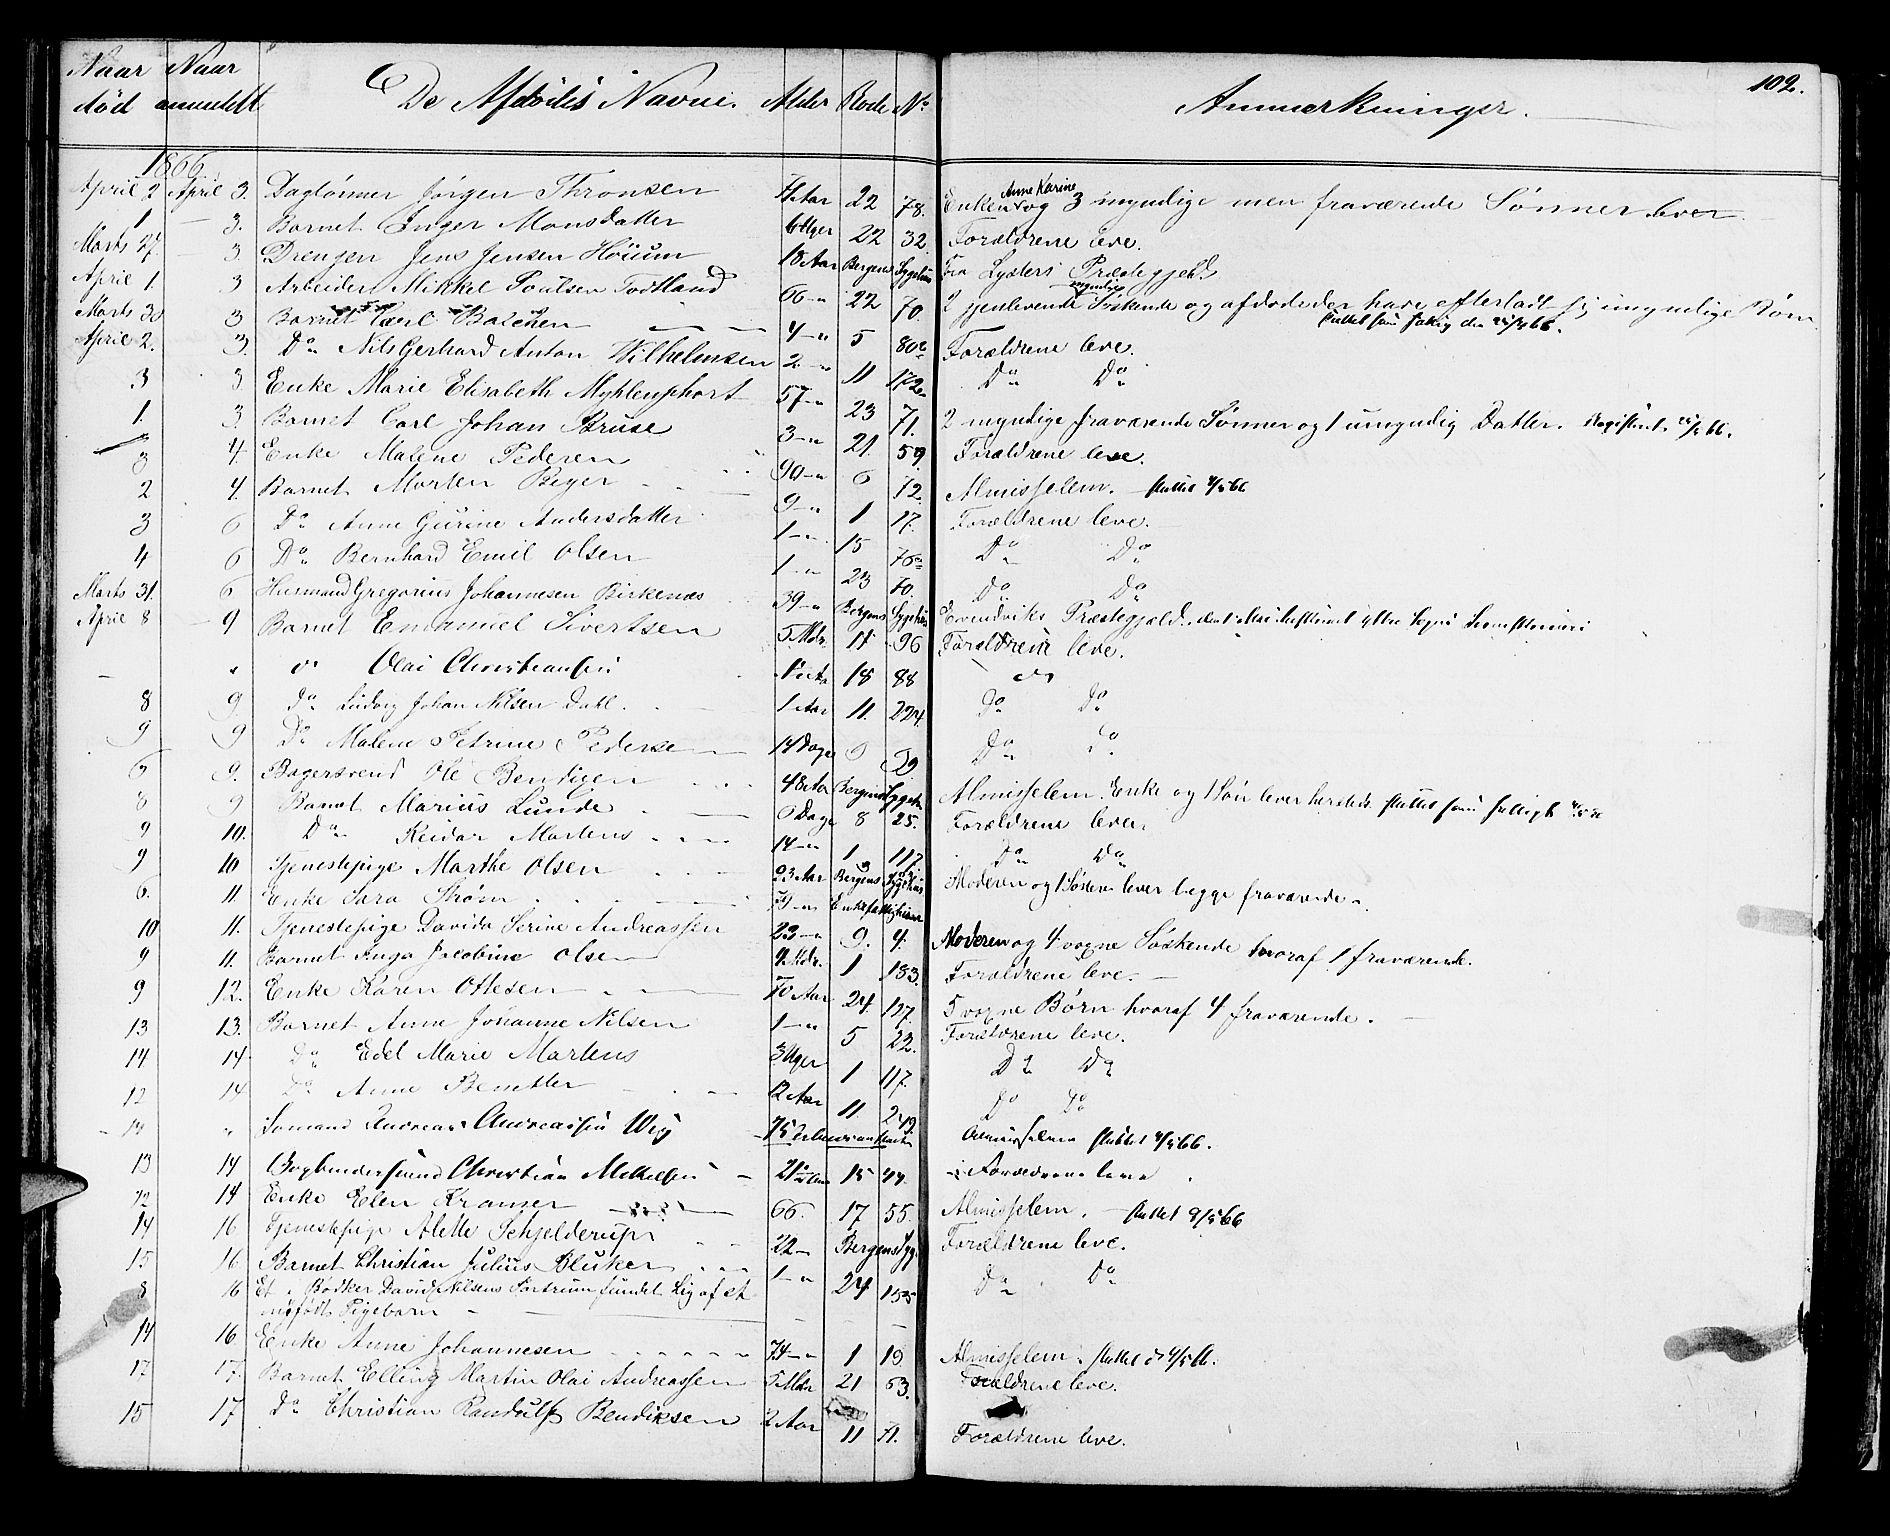 102.
Naar død Naar anmeldt De Afdødes Navne. Alder Rode No Anmærkninger.
1866.
April 2 April 3. Daglönner Jörgen Thronsen 71 Aar 22 78. Enken Anne Karine og 3 myndige men fraværende Sønner lever
1 3. Barnet Inger Monsdatter 6 Uger 22 32 Forældrene leve.
Marts 27. 3. Drengen Jens Jensen Höium 18 Aar Bergens Sygehus Fra Lysters Præstegjeld
April 1. 3 Arbeider Mikkel Poulsen Todtland 66 - " 22 70. 2 gjenlevende myndige Søskende og afdøde der have efterladt sig umyndige Børn
Marts 30 3 Barnet Carl Balchen 4 - " 5 80 Forældrene leve.
April 2. 3. Do Nils Gerhard Anton Wilhelmsen 2 - " 11 172 Do Do
3 3 Enke Marie Elisabeth Myhlenphort 57 - " 23 71. 2 myndige fraværende Sønner og 1 umyndig Datter.
1. 3. Barnet Carl Johan Kruse 3 - " 21. 59 Forældrene leve.
3 4. Enke Malene Pedersen 90 - " 6 72. Almisselem. sluttet
2 4. Barnet Morten Beyer 9 - " 1 17. Forældrene leve.
3 6 Do Anne Gurine Andersdatter 1 - " 15 76 Do Do
4 6 Do Bernhard Emil Olsen 1 - " 23 70. Do Do
Marts 31. 6 Husmand Gregorius Johannesen Birkenæs 39 - " Bergens Sygehus Evendviks Præstegjæld.
April 8 9 Barnet Emanuel Sivertsen 5 Mdr. 11 96 Forældrene leve.
" " Do Olai Christiansen 18 88 do
8 9 Do Ludvig Johan Nilsen Dahl. 1 Aar 11. 224. Do Do
9 9 Do Malene Petrine Pedersen 14 Dage 6 29 Do Do
6 9. Bagersvend Ole Bendixen 48 Aar Bergens Sygeh Almisselem. Enke og 1 Søn lever
8 9 Barnet Marius Lunde 6 Dage 8 25. Forældrene lever.
9 10. Do Reidar Martens 14 - " 1 117. Do Do
9 10 Tjenestepige Marthe Olsen 23 Aar Bergens Sygehus Moderen og 1 Søster lever begge fraværende.
6. 11. Enke Sara Strøm 79 - " Enkefattighuset
10 11. Tjenestepige Davida Serine Andreassen 23 - " 9. 4. Moderen og 4 vogne Søskende hvoraf 1 fraværende.
9 11. Barnet Inga Jacobine Olsen Mdr. 1 183. Forældrene leve.
9 12. Enke Karen Ottesen 70 Aar 24. 127. 5 vogne Børn hvoraf 4 fraværende.
13 13. Barnet Anne Johanne Nilsen 1 - " 5 22. Forældrene leve.
14 14 Do Edel Marie Martens 3 Uger 1 117. Do Do
12 14 Do Anne Benetter 12 Aar 11. 249. Do Do
14 " Sømand Andreas Andreassen 75 Almisselem sluttet
13 14 Bogbindersvend Christian 21 15 Forældrene leve
12 14 Enke Elen Kramer 66. 17 55. Almisselem. sluttet 9/5 66
14 16 Tjenestepige Alette Schjelderup 22 - Bergens Syg. Forældrene leve.
15 16 Barnet Christian Julius Bluken 1 - " 24 155 Do Do
8 16 Et i Bødker David Nilsens Portrum fundet Lig af et
nyfødt Pigebarn
14 16 Enke Anne Johannesen 74 - " 1 19 Almisselem. sluttet
17 17. Barnet Elling Martin Olai Andreassen 5 Mdr 21 63. Forældrene leve.
15 17 Do Christian Randulf Bendixsen 2 Aar 11 71. Forældrene leve.